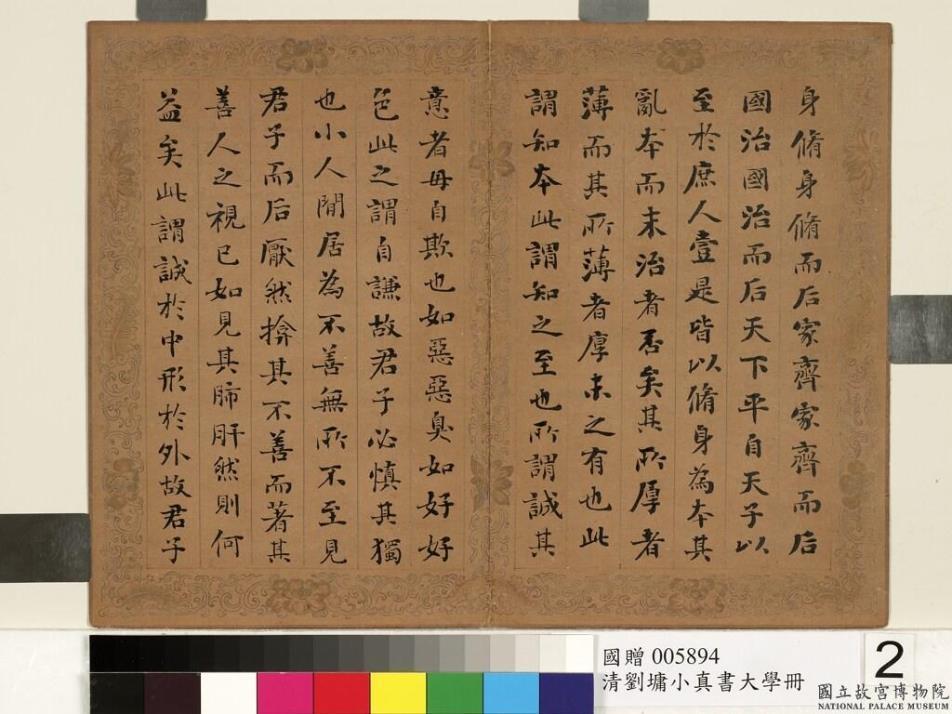 身脩身脩而后家齊家齊而后
國治國治而后天下平自天子以
至於庶人壹是皆以脩身為本其
亂本而末治者否矣其所厚者
薄而其所薄者厚未之有也此
謂知本此謂知之至也所謂誠其
意者毋自欺也如惡惡臭如好好
色此之謂自謙故君子必慎其獨
也小人閒居為不善無所不至見
君子而后厭然揜其不善而著其
善人之視已如見其肺肝然則何
益矣此謂誠於中形於外故君子
國贈 005894
清劉墉小真書大學冊
2
國立故宮博物院
NATIONAL PALACE MUSEUM